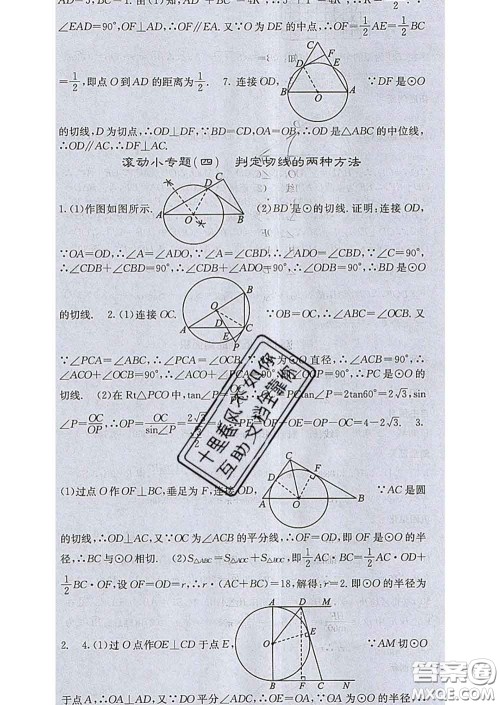 ∠EAD=90°,OF⊥AD,∴OF∥EA.又∵O为DE的中点,∴OF=1/2AE=1/2BC
=1/2,即点O到AD的距离为1/2. 7. 连接OD, ∵DF是⊙O
的切线,D为切点,∴OD⊥DF,∵BD=CD,OA=OB,∴OD是△ABC的中位线,
∴OD∥AC,∴DF⊥AC.
滚动小专题(四) 判定切线的两种方法
1.(1)作图如图所示. (2)BD是⊙的切线.证明:连接OD,
∵OA=OD,∴∠A=∠ADO,∵∠A=∠CBD,∴∠ADO=∠CBD,∵∠C=90°,
∴∠CDB+∠CBD=90°,∴∠CDB+∠ADO=90°,∴∠ODB=90°,∴BD是⊙O
的切线. 2.(1)连接OC. ∵OB=OC,∴∠ABC=∠OCB.又
∵∠PCA=∠ABC,∴∠PCA=∠OCB.∵ 为⊙O直径,∴∠ACB=90°,∴
∠ACO+∠OCB=90°,∴∠ACO+ =90°,∴ =90°,∴PC是⊙O的
切线. (2)在Rt△PCO中,tan∠P= PCtan∠P=2tan60°=2√3,sin
∠P=OC/OP,∴OP=OC/sin∠P=2√3 PE=OP-OE=OP-OC=4-2√3. 3.
(1)过点O作OF⊥BC,垂足为F,连接OD, ∵AC是圆
的切线,∴OD⊥AC,又∵OC为∠ACB的平分线,∴OF=OD,即OF是⊙O的半
径,∴BC与⊙O相切. (2)S△ABC=S△AOC+S△BOC,即1/2AC·BC=1/2AC·OD+
1/2BC·OF,设OF=OD=r,∴r·(AC+BC)=18,解得:r=2.即⊙O的半径为
2. 4.(1)过O点作OE⊥CD于点E, ∵AM切⊙O
于点A,∴OA⊥AD,又∵DO平分∠ADC,∴OE=OA,∵OA为⊙O的半径,
十里春风不如你
互助文档全靠你
作业精灵
MXQE.COM